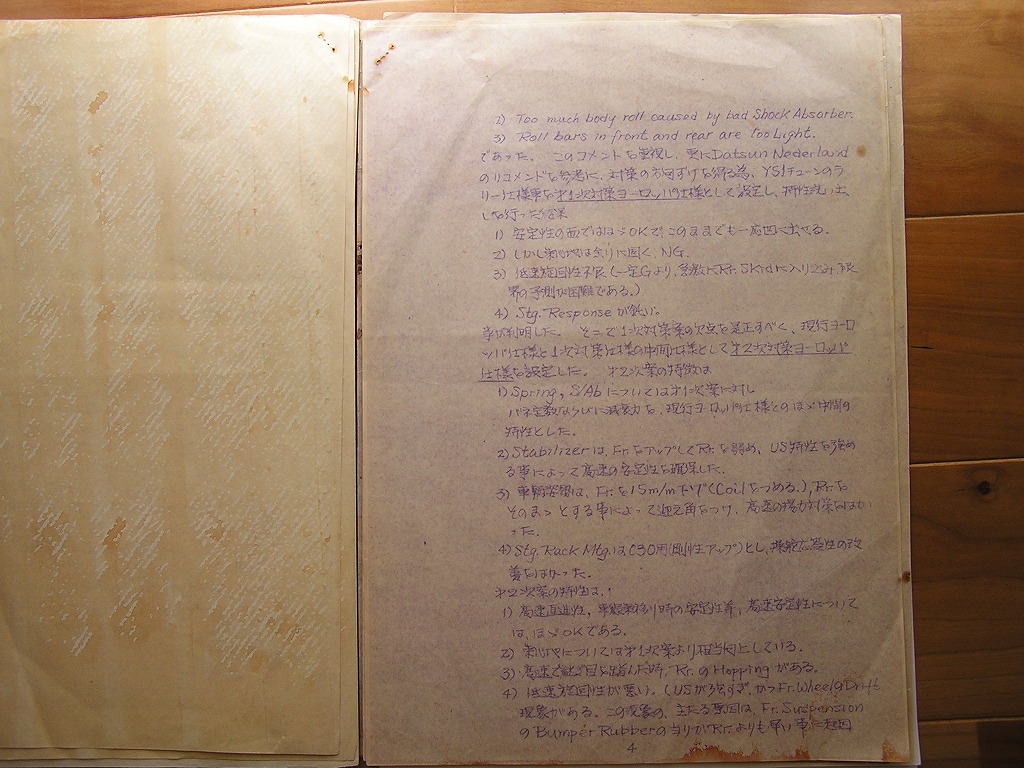 2) Too much body roll caused by bad Shock Absorber.
3) Roll bars in front and rear are too Light.
であった。 このコメントを重視し、更にDatsun Nederland
のリコメンドを参考に、対策の方向ずけを得る為、YS1チューンのラ
リー仕様車を第1次対策ヨーロッパ仕様として設定し、特性洗い出
しを行った結果
1) 安定性の面ではほゞOKで、このままでも一応出せる。
2) しかし乗心地は余りに固く、NG.
3) 低速旋回性不良(一定Gより、急激にRr. Skidに入り込み、限
界の予測が困難である。)
4) Stg. Response が鈍い。
事が判明した。 そこで1次対策案の欠点を是正すべく、現行ヨーロ
ッパ仕様と1次対策仕様の中間仕様として第2次対策ヨーロッパ
仕様を設定した。 第2次案の特徴は
1) Spring, S/Ab については第1次案に対し
バネ定数ならびに減衰力を、現行ヨーロッパ仕様とのほゞ中間の
特性とした。
2) Stabilizerは、Fr.をアップしてRr.を弱め、US特性を強め
る事によって高速の安定性を確保した。
3) 車輌姿勢は、Fr.を15m/m下げ(Coilをつめる.), Rr.を
そのまゝとする事によって迎え角をつけ、高速の揚力対策をはか
った.
4) Stg. Rack Mtg.はC30用(剛性アップ)とし、操舵応答性の改
善をはかった。
第2次案の特性は、
1) 高速直進性、車線乗移り時の安定性等、高速安定性について
は、ほゞOKである。
2) 乗心地については第1次案より相当向上している.
3) 高速で継ぎ目を踏んだ時、Rr.のHoppingがある。
4) 低速旋回性が悪い。(USが強すぎ、かつFr. WheelのDrift
現象がある。この現象の、主たる原因は、Fr. Suspension
のBumper Rubberの当りがRr.よりも早い事に起因
4